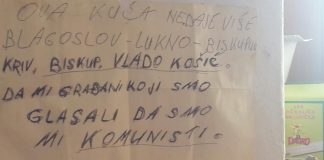 OVA KUĆA NEDAJE VIŠE
BLAGOSLOV-LUKNO-BISKUPU
KRIV, BISKUP, VLADO KOŠIĆ.
DA MI GRAĐANI KOJI SMO
GLASALI DA SMO
MI KOMUNISTI.